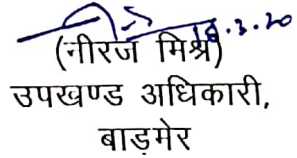 18.3.20
(नीरज मिश्र)
उपखण्ड अधिकारी,
बाड़मेर